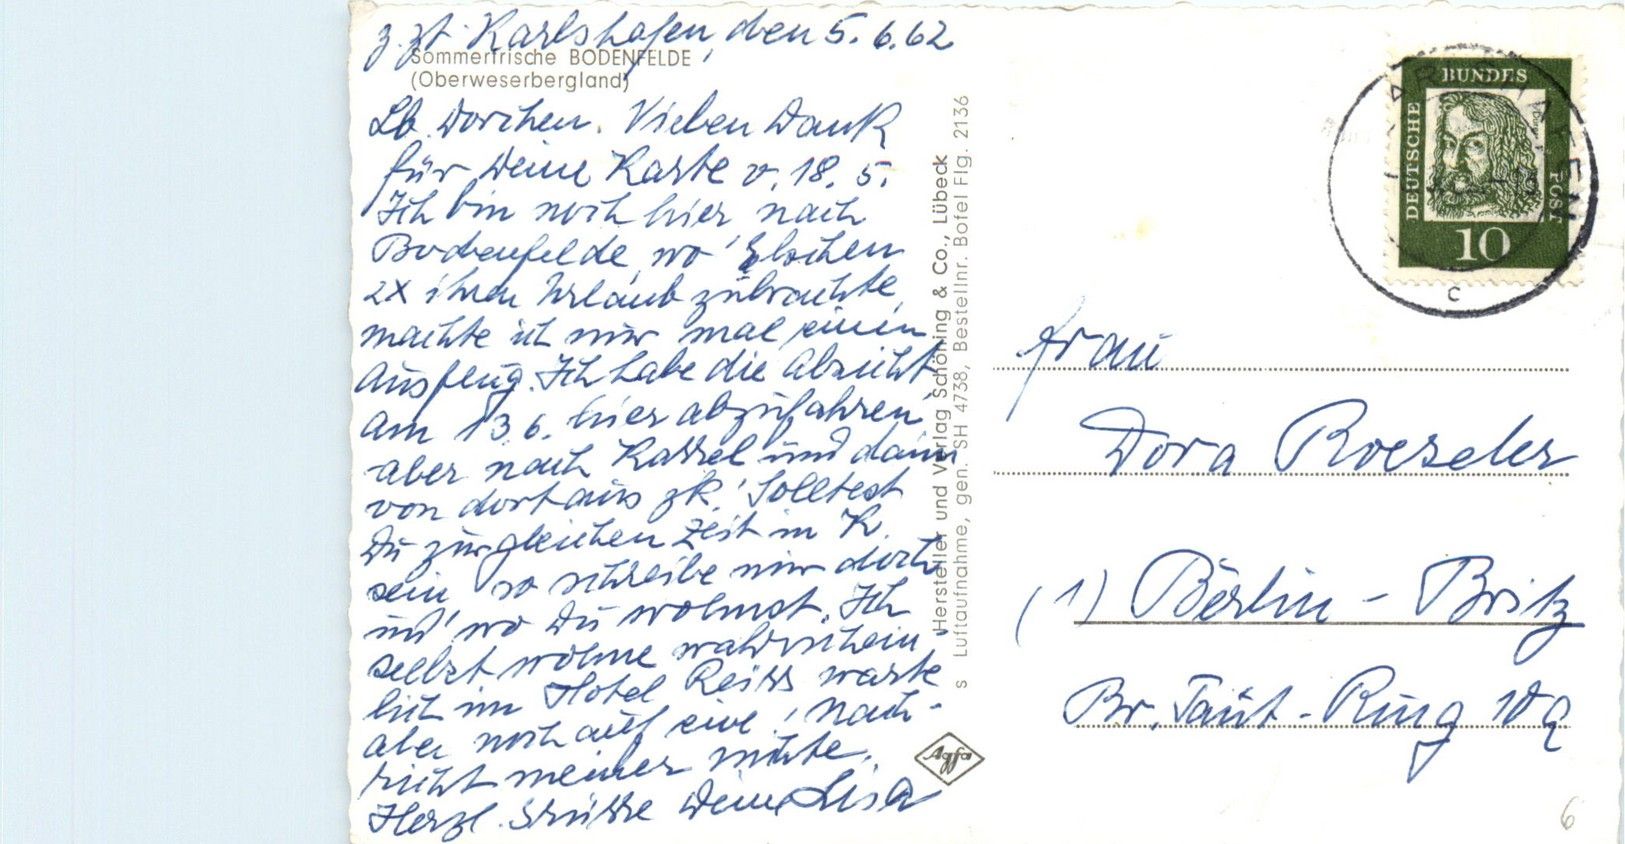 z. Zt. Karlshafen, den 5.6.62
Sommerfrische BODENFELDE
(Oberweserbergland)
Lb. Dorchen. Vielen Dank
für Deine Karte v. 18. 5.
Ich bin noch hier, nach
Bodenfelde, wo Elschen
2x ihren Urlaub zubrachte,
machte ich nur mal einen
Ausflug. Ich habe die Absicht
am 13.6. hier abzufahren,
aber nach Kassel und dann
von dort aus zk. Solltest
Du zur gleichen Zeit in K.
sein so schreibe mir doch
und wo Du wohnst. Ich
selbst wohne wahrschein-
lich im Hotel Reiss warte
aber noch auf eine Nach-
richt meiner
Herzl. Grüsse Deine Lisa
Hersteller und Verlag Schöning & Co., Lübeck
s Luftaufnahme, gen. SH 4738, Bestellnr. Bofel Flg. 2136
Agfa
DEUTSCHE
BUNDES
POST
10
c
Frau
Dora Roeseler
(1) Berlin - Britz
Br. Taut - Ring
6